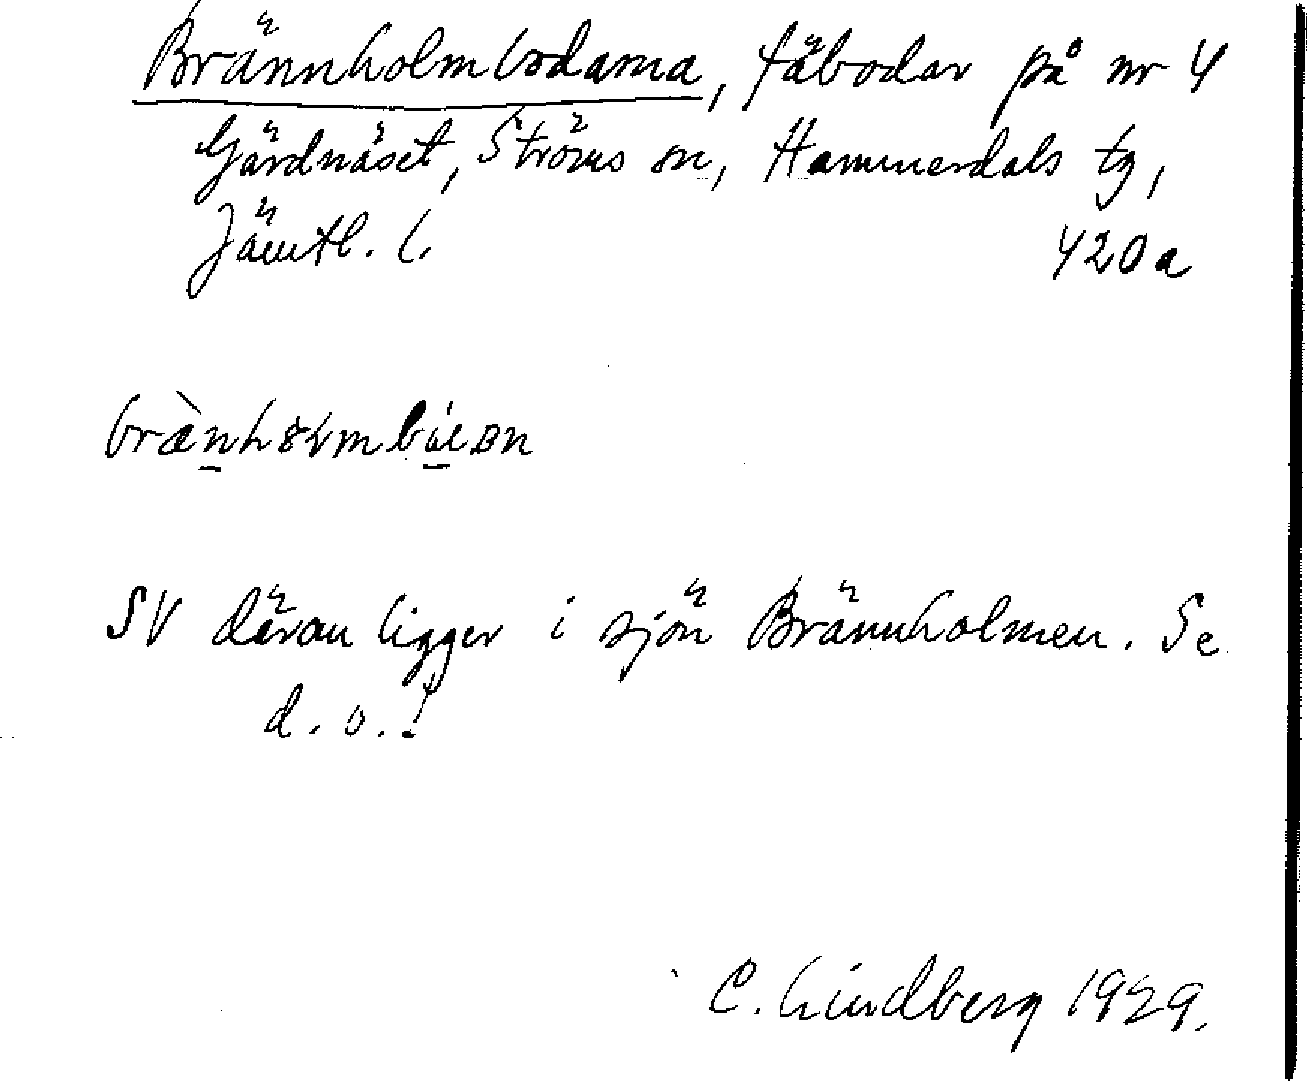 Brännholmbodarna, fäbodar på nr 4
Gärdnäset, Ströms sn, Hammerdals tg,
Jämtl. l.
420a
SV däron ligger i sjön Brännholmen. Se
d. o.!
C. Lindberg 1929.